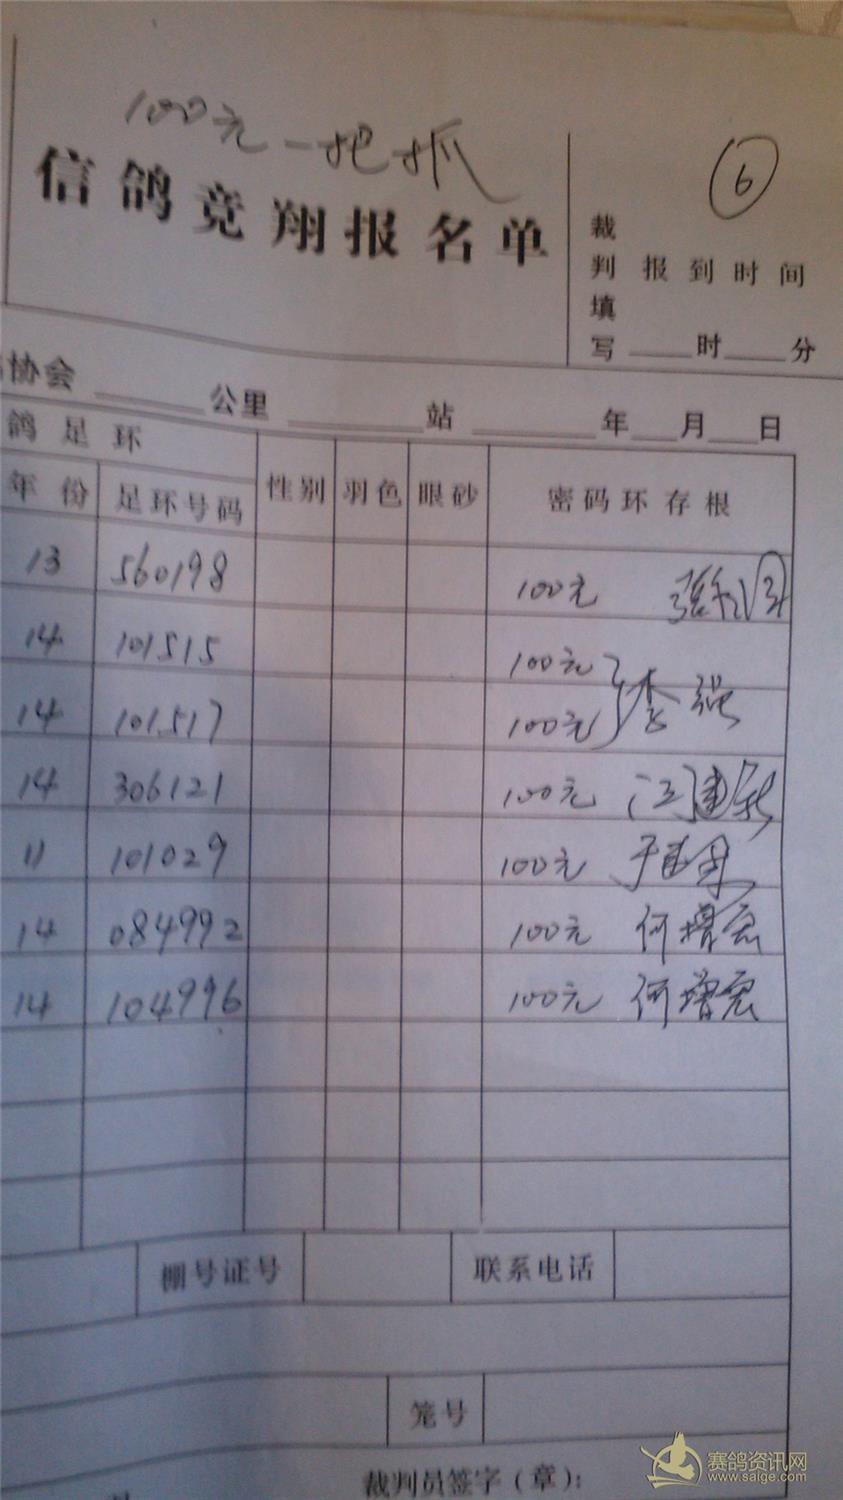 100元一把抓
信鸽竞翔报名单
⑥
裁
判 报到时间
填
写 ____时____分
协会 ____公里 ____站 ____年__月__日
鸽足环
年份 足环号码 性别 羽色 眼砂 密码环存根
13 560198 100元
14 101515 100元
14 101517 100元 李强
14 306121 100元 江建新
11 101029 100元
14 084992 100元 何增宏
14 104996 100元 何增宏
棚号证号 联系电话
笼号
裁判员签字(章):
赛鸽资讯网
www.saige.com